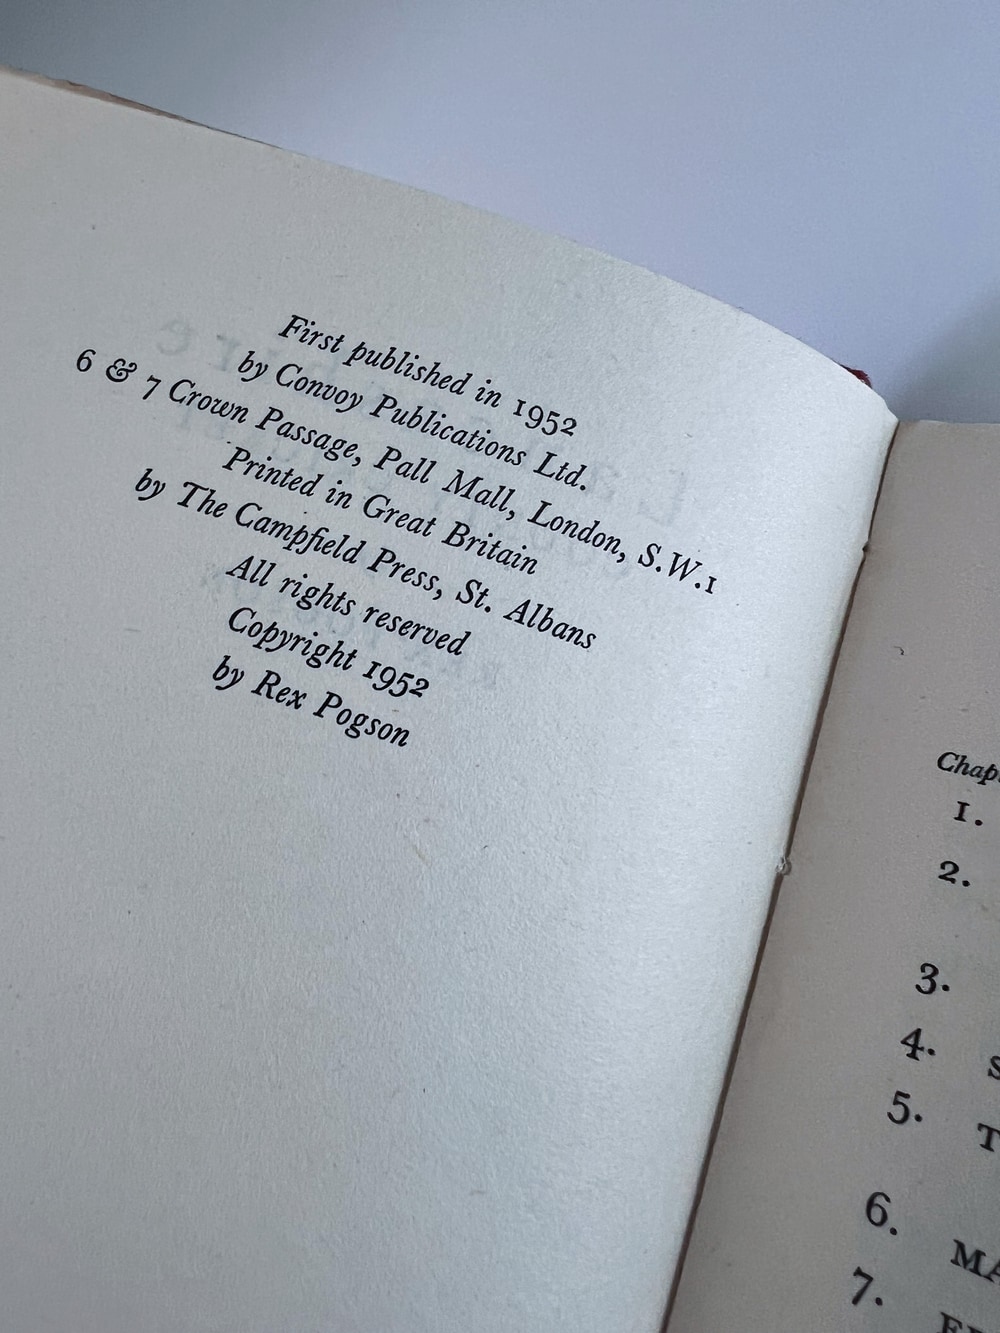 First published in 1952
by Convoy Publications Ltd.
6 & 7 Crown Passage, Pall Mall, London, S.W.1
Printed in Great Britain
by The Campfield Press, St. Albans
All rights reserved
Copyright 1952
by Rex Pogson
1.
2.
3.
4.
5.
6.
7.